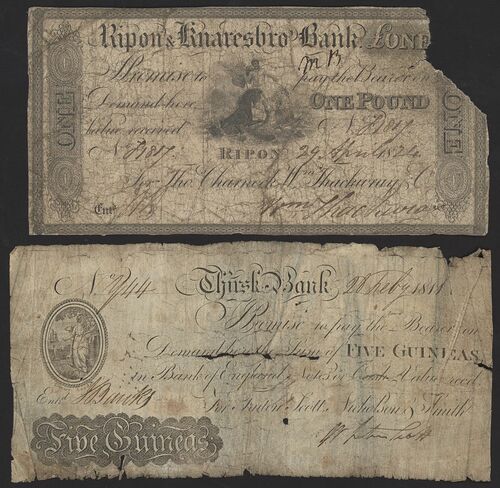 Ripon & Knaresbro' Bank. £ONE
I Promise to pay the Bearer on
Demand here ONE POUND
value received No P1817
No P1817. RIPON 29 April 1824
For Tho. Charnock Wm Thackwray & Co
Entd Wm Thackwray
ONE
ONE
No 944 Thirsk Bank 1811
I Promise to pay the Bearer on
Demand the Sum of FIVE GUINEAS
in Bank of England Notes or Cash Value recd
Entd For Scott, Nicholson & Smith
Five Guineas